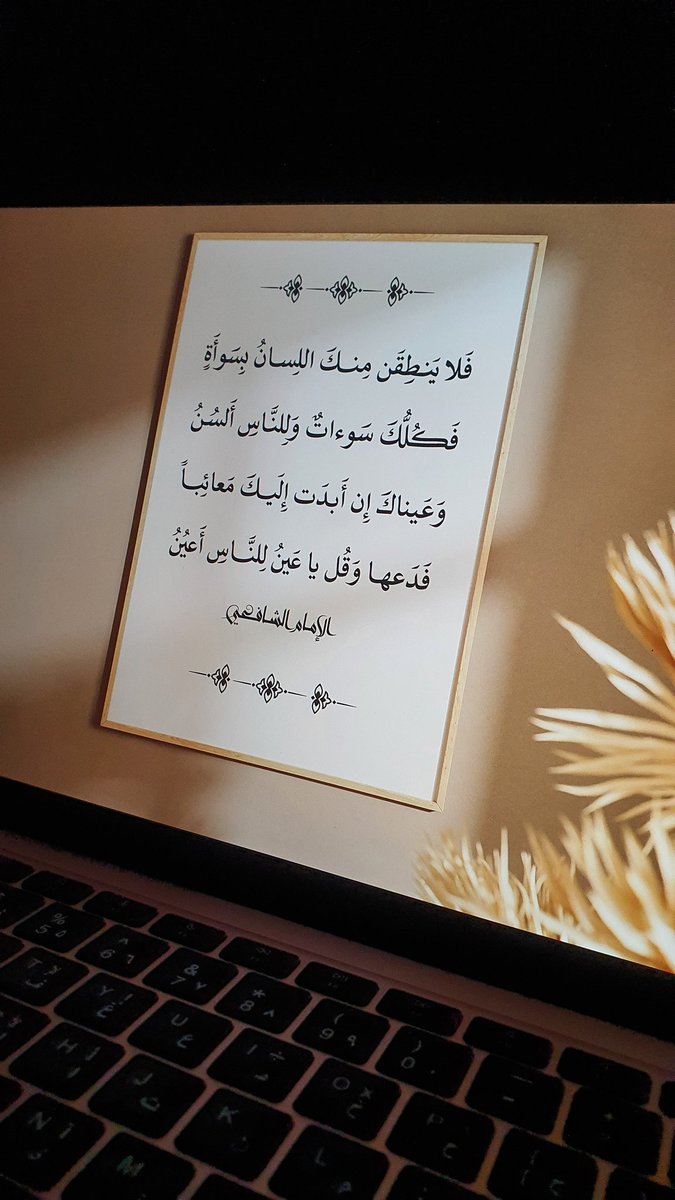 فَلا يَنطِقَن مِنكَ اللِسانُ بِسَوأَةٍ
فَكُلُّكَ سَوءاتٌ وَلِلنَّاسِ أَلسُنُ
وَعَيناكَ إِن أَبدَت إِلَيكَ مَعائِباً
فَدَعها وَقُل يا عَينُ لِلنَّاسِ أَعيُنُ
الإمام الشافعي
% 5 ٥
^ 6 ٦
& 7 ٧
* 8 ٨
( 9 ٩
) 0 ٠
T
Y
U
I
O
H
J
K
L
N
M